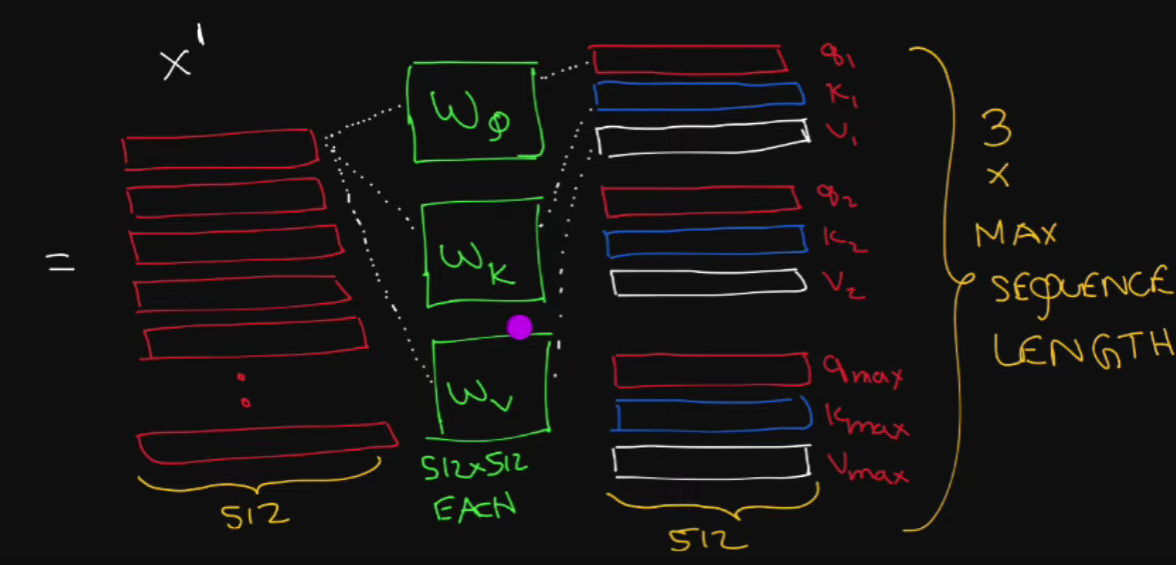 x'
=
512
WQ
WK
WV
512x512
EACH
q1
K1
V1
q2
K2
V2
qmax
Kmax
Vmax
512
3
x
MAX
SEQUENCE
LENGTH